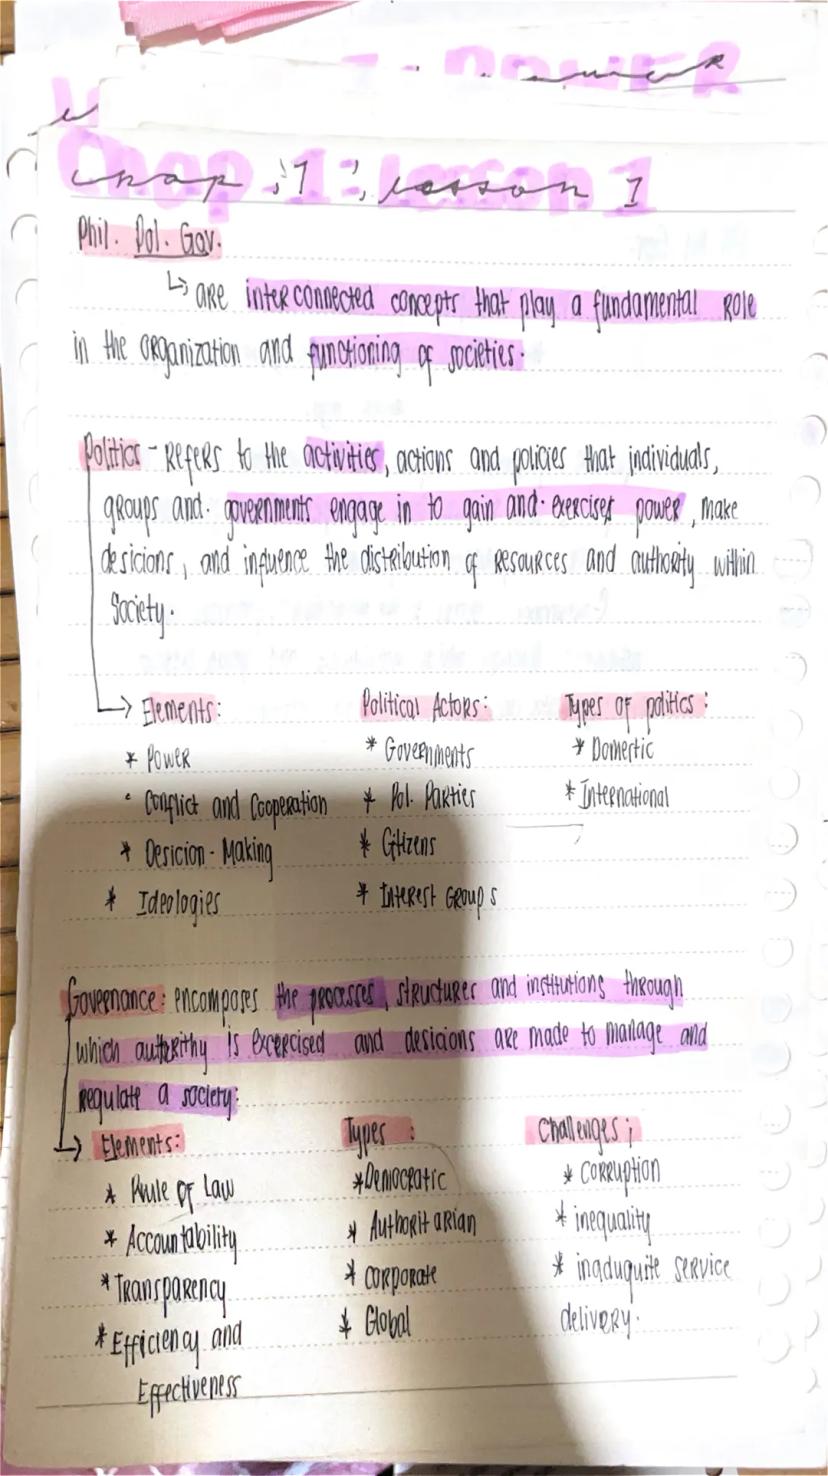 POWER
Chap. 1: Lesson 1
Phil. Pol. Gov.
↳ are interconnected concepts that play a fundamental role
in the organization and functioning of societies.
Politics - Refers to the activities, actions and policies that individuals,
groups and. governments engage in to gain and. exercises power, make
desicions, and influence the distribution of resources and authority within
Society.
→ Elements: Political Actors: Types of politics:
* Power * Governments * Domestic
• Conflict and Cooperation * Pol. Parties * International
* Desicion-Making * Citizens
* Ideologies * Interest Groups
Governance: encomposes the processes, structures and institutions through
which is exercised and desicions are made to manage and
regulate a society:
→ Elements: Types: Challenges;
* Rule of Law * Democratic * Corruption
* Accountability * Authoritarian * inequality
* Transparency * corporate * inaduquite service
* Efficiency and * Global delivery.
Effectiveness